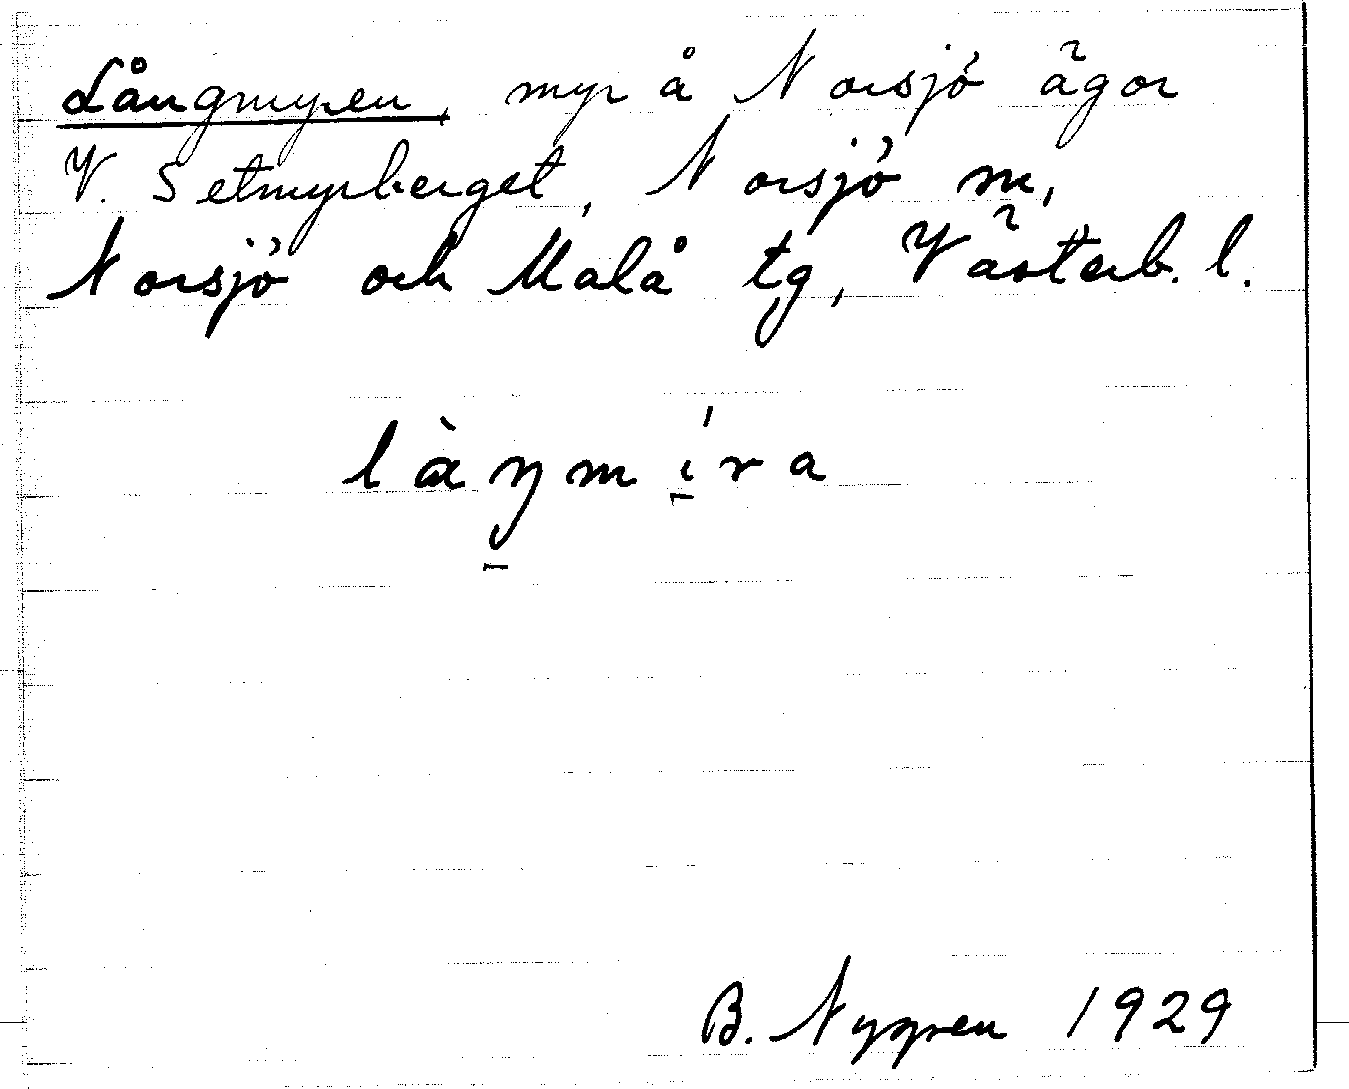 Långmyren, myr å Norsjö ägor
V. Setmyrberget, Norsjö sn,
Norsjö och Malå tg, Västerb. l.
làŋmíra
B. Nygren 1929